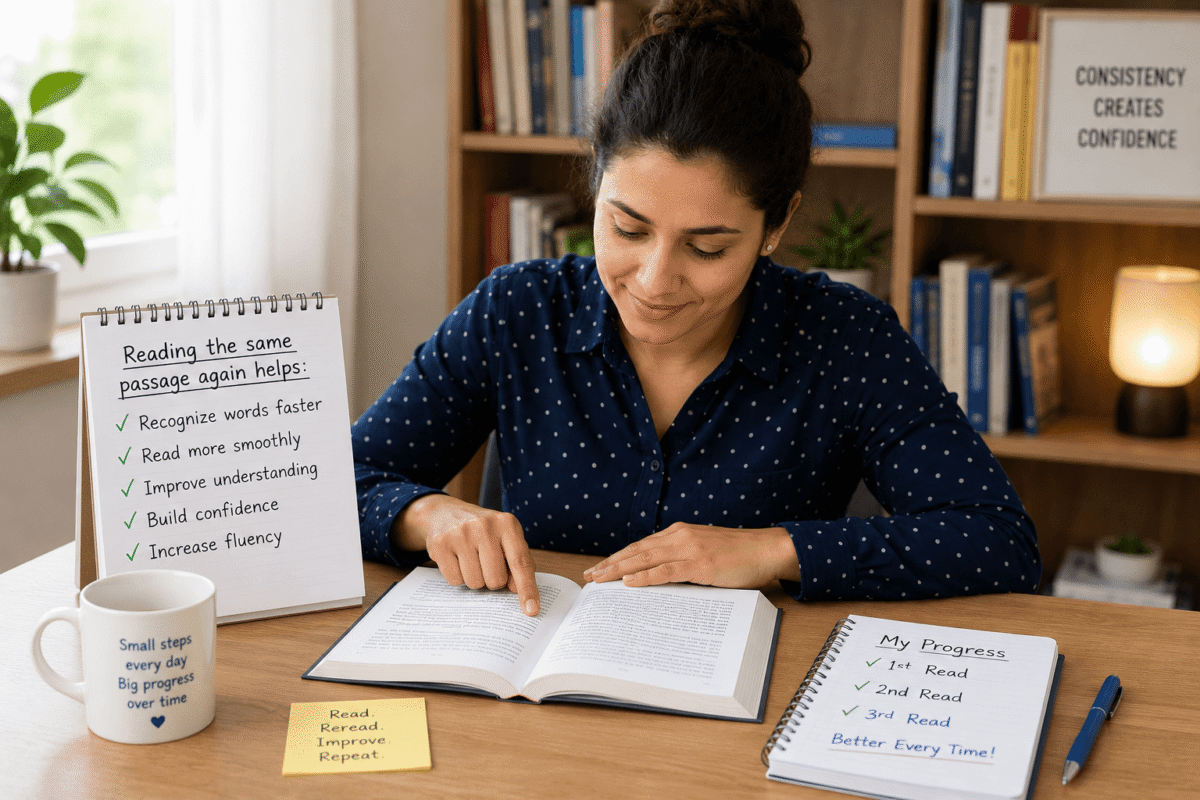 CONSISTENCY
CREATES
CONFIDENCE
Reading the same
passage again helps:
✓ Recognize words faster
✓ Read more smoothly
✓ Improve understanding
✓ Build confidence
✓ Increase fluency
Small steps
every day
Big progress
over time
Read.
Reread.
Improve.
Repeat.
My Progress
✓ 1st Read
✓ 2nd Read
✓ 3rd Read
Better Every Time!